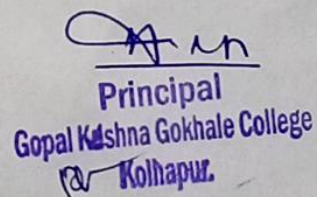 Principal
Gopal Krishna Gokhale College
Kolhapur.